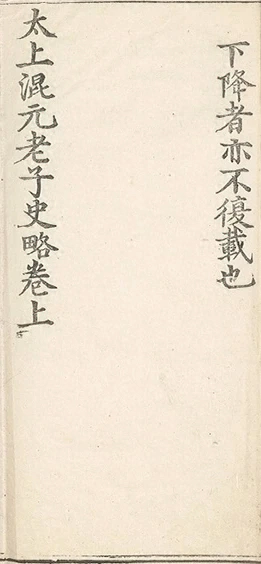 下降者亦不復載也
太上混元老子史略卷上